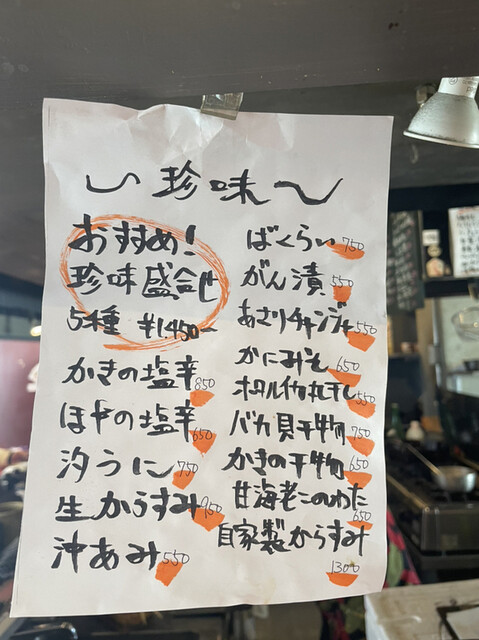 〜珍味〜
おすすめ!
珍味盛合せ
5種 ¥1450-
かきの塩辛 850
ほやの塩辛 650
汐うに 750
生からすみ 950
沖あみ 550
ばくらい 750
がん漬 550
あさりチャンジャ 550
かにみそ 650
ホタルイカ丸干し 550
バカ貝干物 750
かきの干物 650
甘海老このわた 650
自家製からすみ
1300